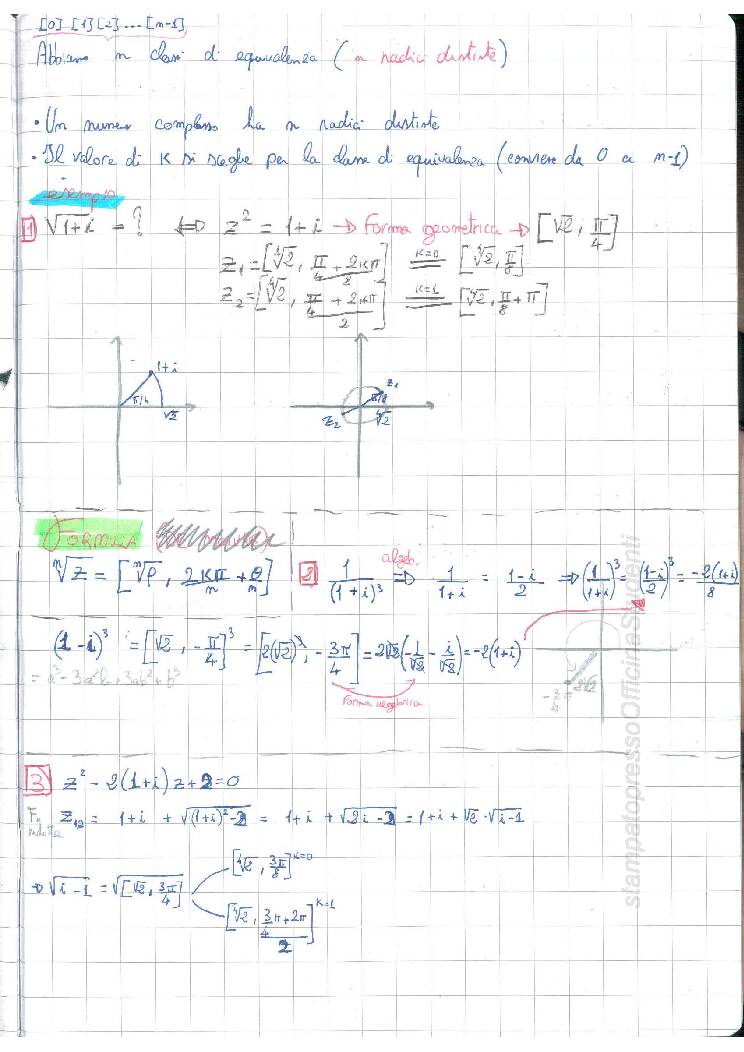 [0] [1] [2] ... [n-1]
Abbiamo n classi di equivalenza (n radici distinte)
• Un numero complesso ha n radici distinte
• Il valore di K si sceglie per la classe di equivalenza (conviene da 0 a n-1)
esempio
1 √(1+i) = ? ⇔ z² = 1+i → Forma geometrica → [√2, π/4]
z₁ = [⁴√2, (π/4 + 2kπ)/2] K=0 = [⁴√2, π/8]
z₂ = [⁴√2, (π/4 + 2kπ)/2] K=1 = [⁴√2, π/8 + π]
1+i
π/4
√2
z₁
π/8
z₂
⁴√2
FORMULA
ⁿ√z = [ⁿ√ρ, 2kπ/n + θ/n]
2 1/(1+i)³ algeb. ⇒ 1/(1+i) = (1-i)/2 ⇒ (1/(1+i))³ = ((1-i)/2)³ = -2(1+i)/8
(1-i)³ = [√2, -π/4]³ = [2(√2)³, -3π/4] = 2√2(-1/√2 - i/√2) = -2(1+i)
= a³ - 3a²b + 3ab² + b³
Forma algebrica
-3/4 π
2√2
3 z² - 2(1+i)z + 2 = 0
z₁₂ = 1+i + √((1+i)² - 2) = 1+i + √(2i - 2) = 1+i + √2 · √(i-1)
⇒ √(i-1) = √[√2, 3π/4]
[⁴√2, 3π/8] K=0
[⁴√2, (3/4 π + 2π)/2] K=1
stampatopressoOfficinaStudenti